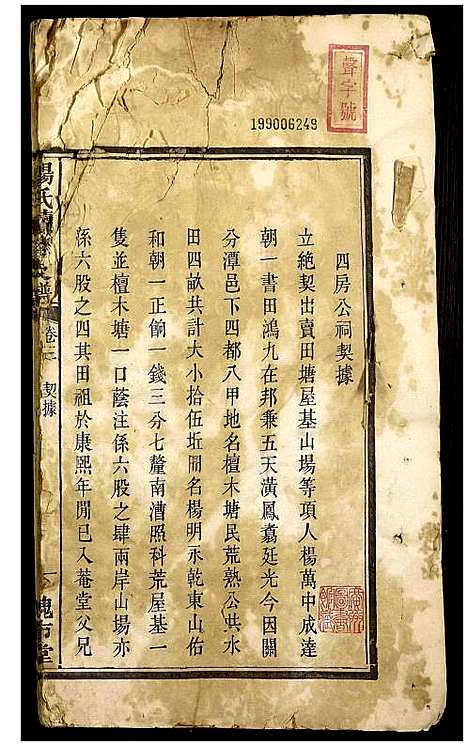 聲字號
199006249
四房公祠契據
立絶契出賣田塘屋基山場等項人楊萬中成達
朝一書田鴻九在邦秉五天潢鳳翥廷光今因關
分潭邑下四都八甲地名檀木塘民荒熟公共水
田四畝共計大小拾伍坵開名楊明永乾東山佑
和朝一正餉一錢三分七釐南漕照科荒屋基一
隻並檀木塘一口蔭注係六股之肆兩岸山場亦
係六股之四其田祖於康熙年閒已入菴堂父兄
楊氏譜
卷二
契據
槐市堂